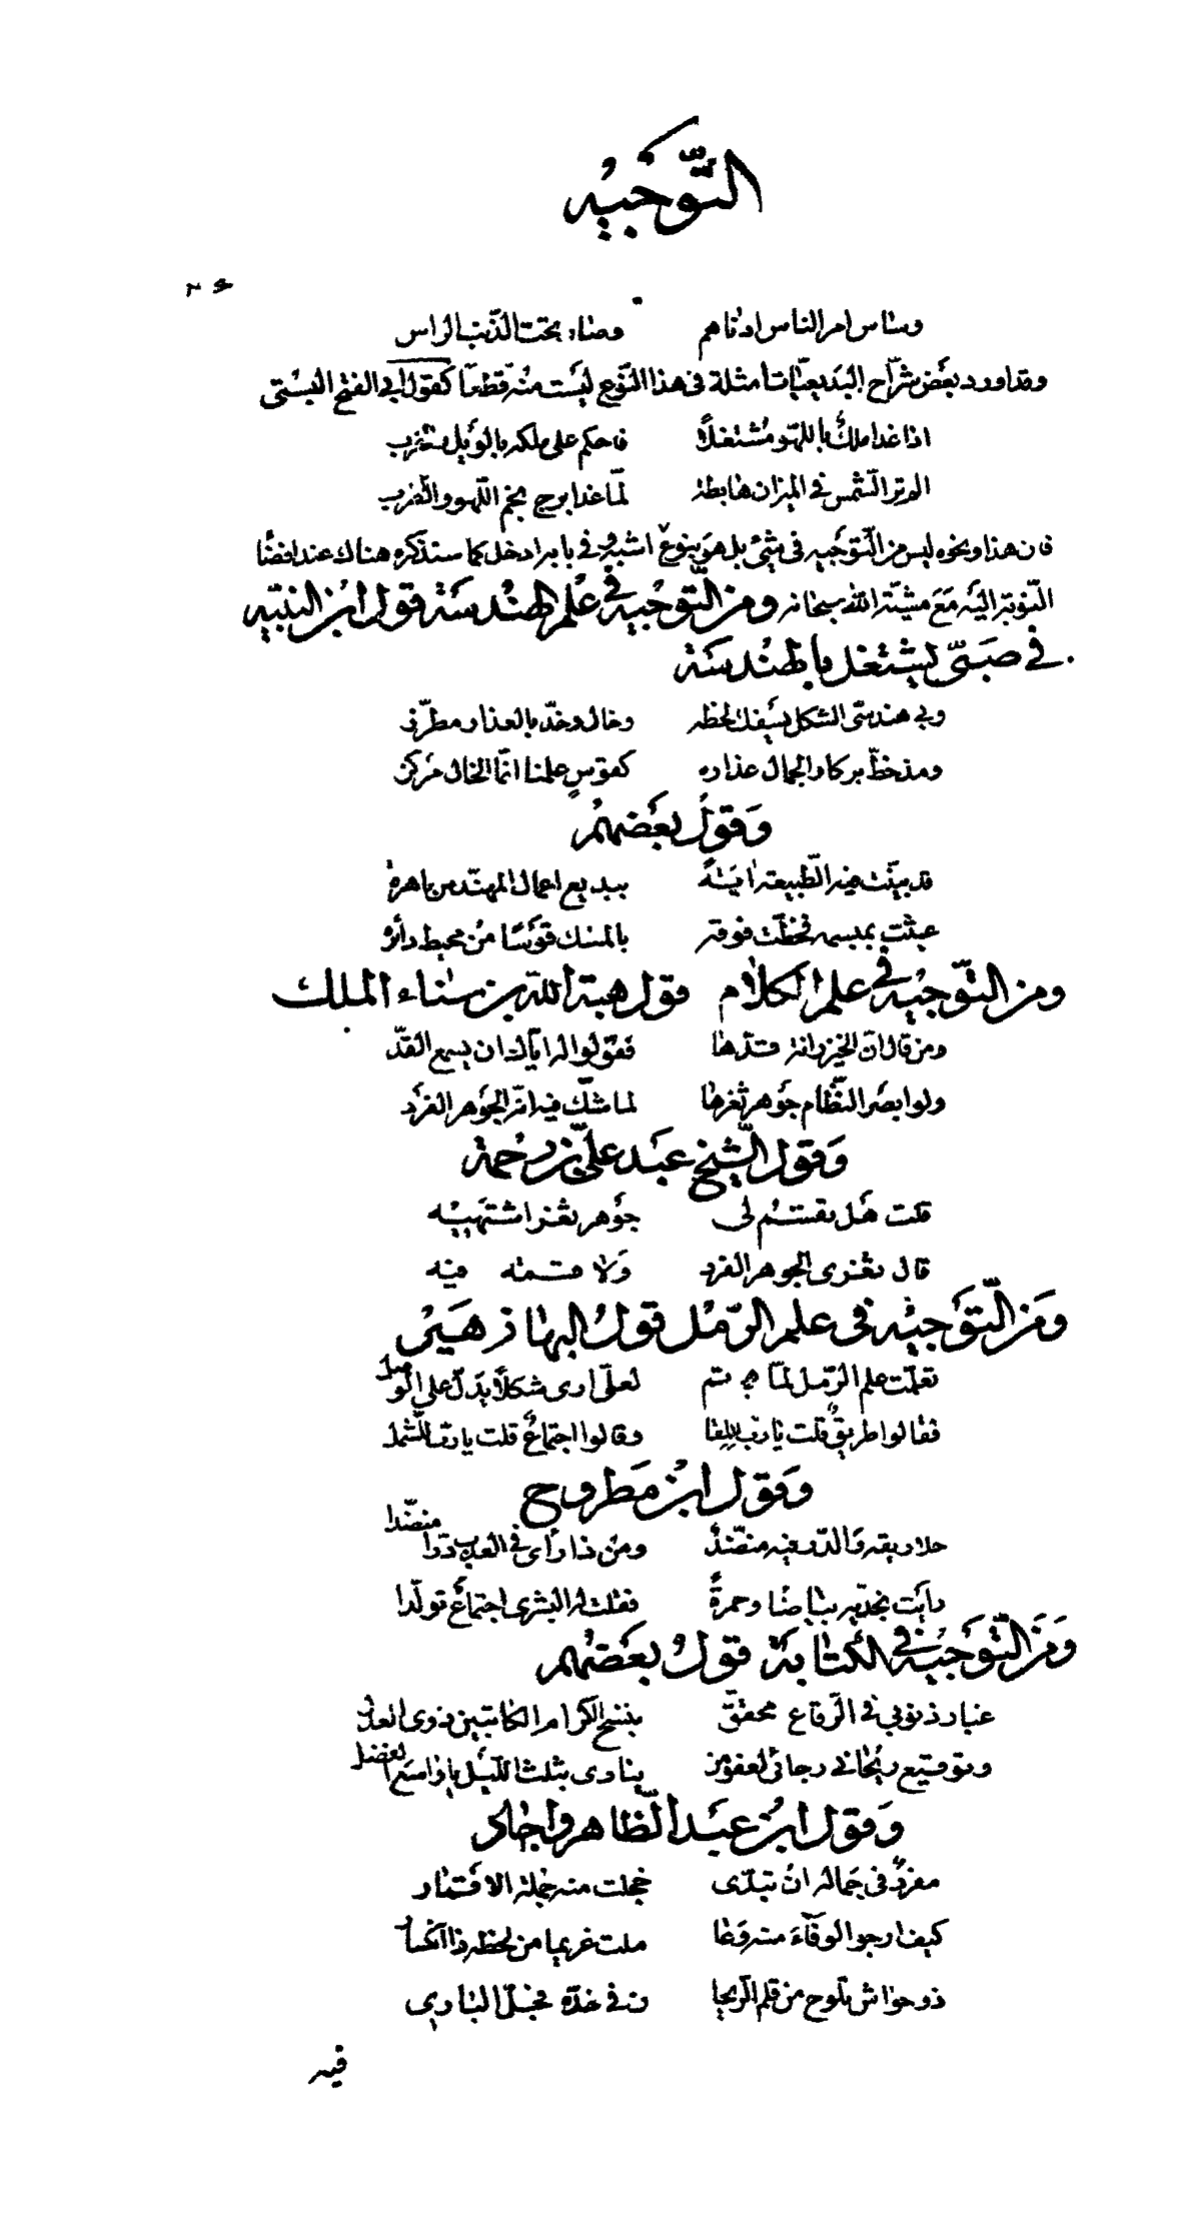 التّوجيه
وساس امر الناس ادناهم وصار تحت الذّنب الراس
وقد اورد بعض شرّاح البديعيّات امثلة فى هذا النّوع ليست منه قطعًا كقول ابى الفتح البستى
اذا غدا ملك باللهو مشتغلًا فاحكم على ملكه بالويل والخرب
الم تر الشّمس فى الميزان هابطة لمّا غدا برج نجم اللّهو والطّرب
فان هذا ونحوه ليس من التّوجيه فى شئ بل هو بنوع اشبه وفى بابه ادخل كما ستذكره هناك عند افضاء
النّوبة اليه مع مشيّة الله سبحانه ومن التّوجيه فى علم الهندسة قول ابن النبيه
فى صبىّ يشتغل بالهندسة
وبى هندسىّ الشكل يسبيك لحظه وخال وخدّ بالعذار مطرّز
ومذ خطّ بركار الجمال عذاره كقوسٍ علمنا انّما الخال مركز
وقول بعضهم
قد بيّنت فيه الطّبيعة انّها ببديع اعمال المهندس ماهرة
عبثت بمبسمه فخطّت فوقه بالمسك قوسًا من محيط دائره
ومن التّوجيه فى علم الكلام قول هبة الله بن سناء الملك
ومن قال انّ الخيزرانة قدّها فقولوا له اياك ان يسمع القدّ
ولو ابصر النّظّام جوهر ثغرها لما شكّ فيه انّه الجوهر الفرد
وقول الشّيخ عبد علىّ بن رحمة
قلت هل يقسم لى جوهر ثغر اشتهيه
قال ثغرى الجوهر الفرد ولا قسمة فيه
ومن التّوجيه فى علم الرّمل قول البها زهير
تعلّمت علم الرّمل لمّا هجرتم لعلّى ارى شكلًا يدلّ على الوصل
فقالوا طريقٌ قلت يا ربّ للّقا وقالوا اجتماعٌ قلت يا ربّ للشّمل
وقول ابن مطروح
حلا ريقه والدّر فيه منضّدٌ ومن ذا رأى فى العذب درّا منضّدا
رأيت بخدّيه بياضًا وحمرةً فقلت له البشرى اجتماعٌ تولّدا
ومن التّوجيه فى الكتابة قول بعضهم
غبار ذنوبى فى الرّقاع محقّق بنسخ الكرام الكاتبين ذوى العدل
وتوقيع ريحانى رجائى لعفو من ينادى بثلث اللّيل يا واسع الفضل
وقول ابن عبد الظّاهر واجاد
مفردٌ فى جماله ان تبدّى خجلت منه جملة الاقمار
كيف ارجو الوفآء منه وعا ملت غريما من لحظه ذا انكسار
ذو حواش تلوح من قلم الرّيحا ن فى خدّه فجلّ البارى
فيه